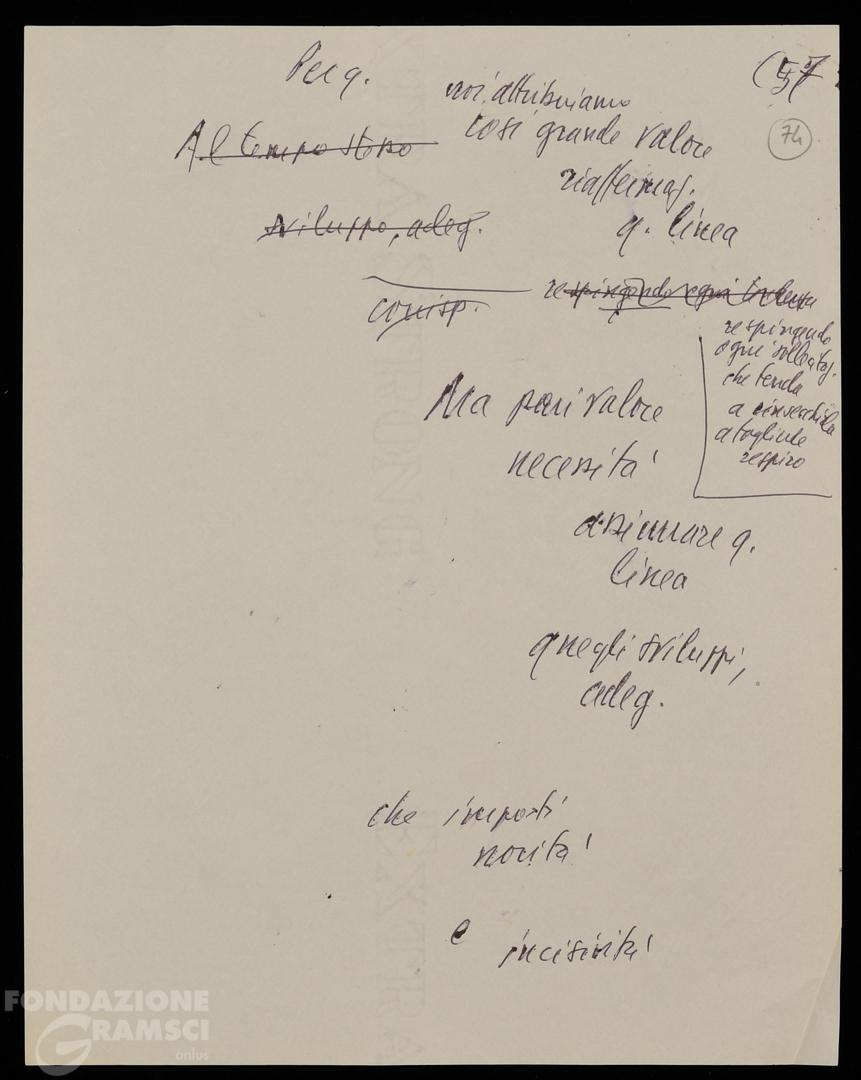 Per q.
(57
74
noi attribuiamo
così grande valore
Al tempo stesso
riaffermaz.
sviluppo, adeg.
q. linea
respingendo ogni
conisp.
respingendo
ogni sollecitaz.
che tenda
a
a togliere
respiro
Ma pari valore
necessità
assicurare q.
linea
quegli sviluppi,
adeg.
che imposti
novità
e
incisività
FONDAZIONE
GRAMSCI
onlus